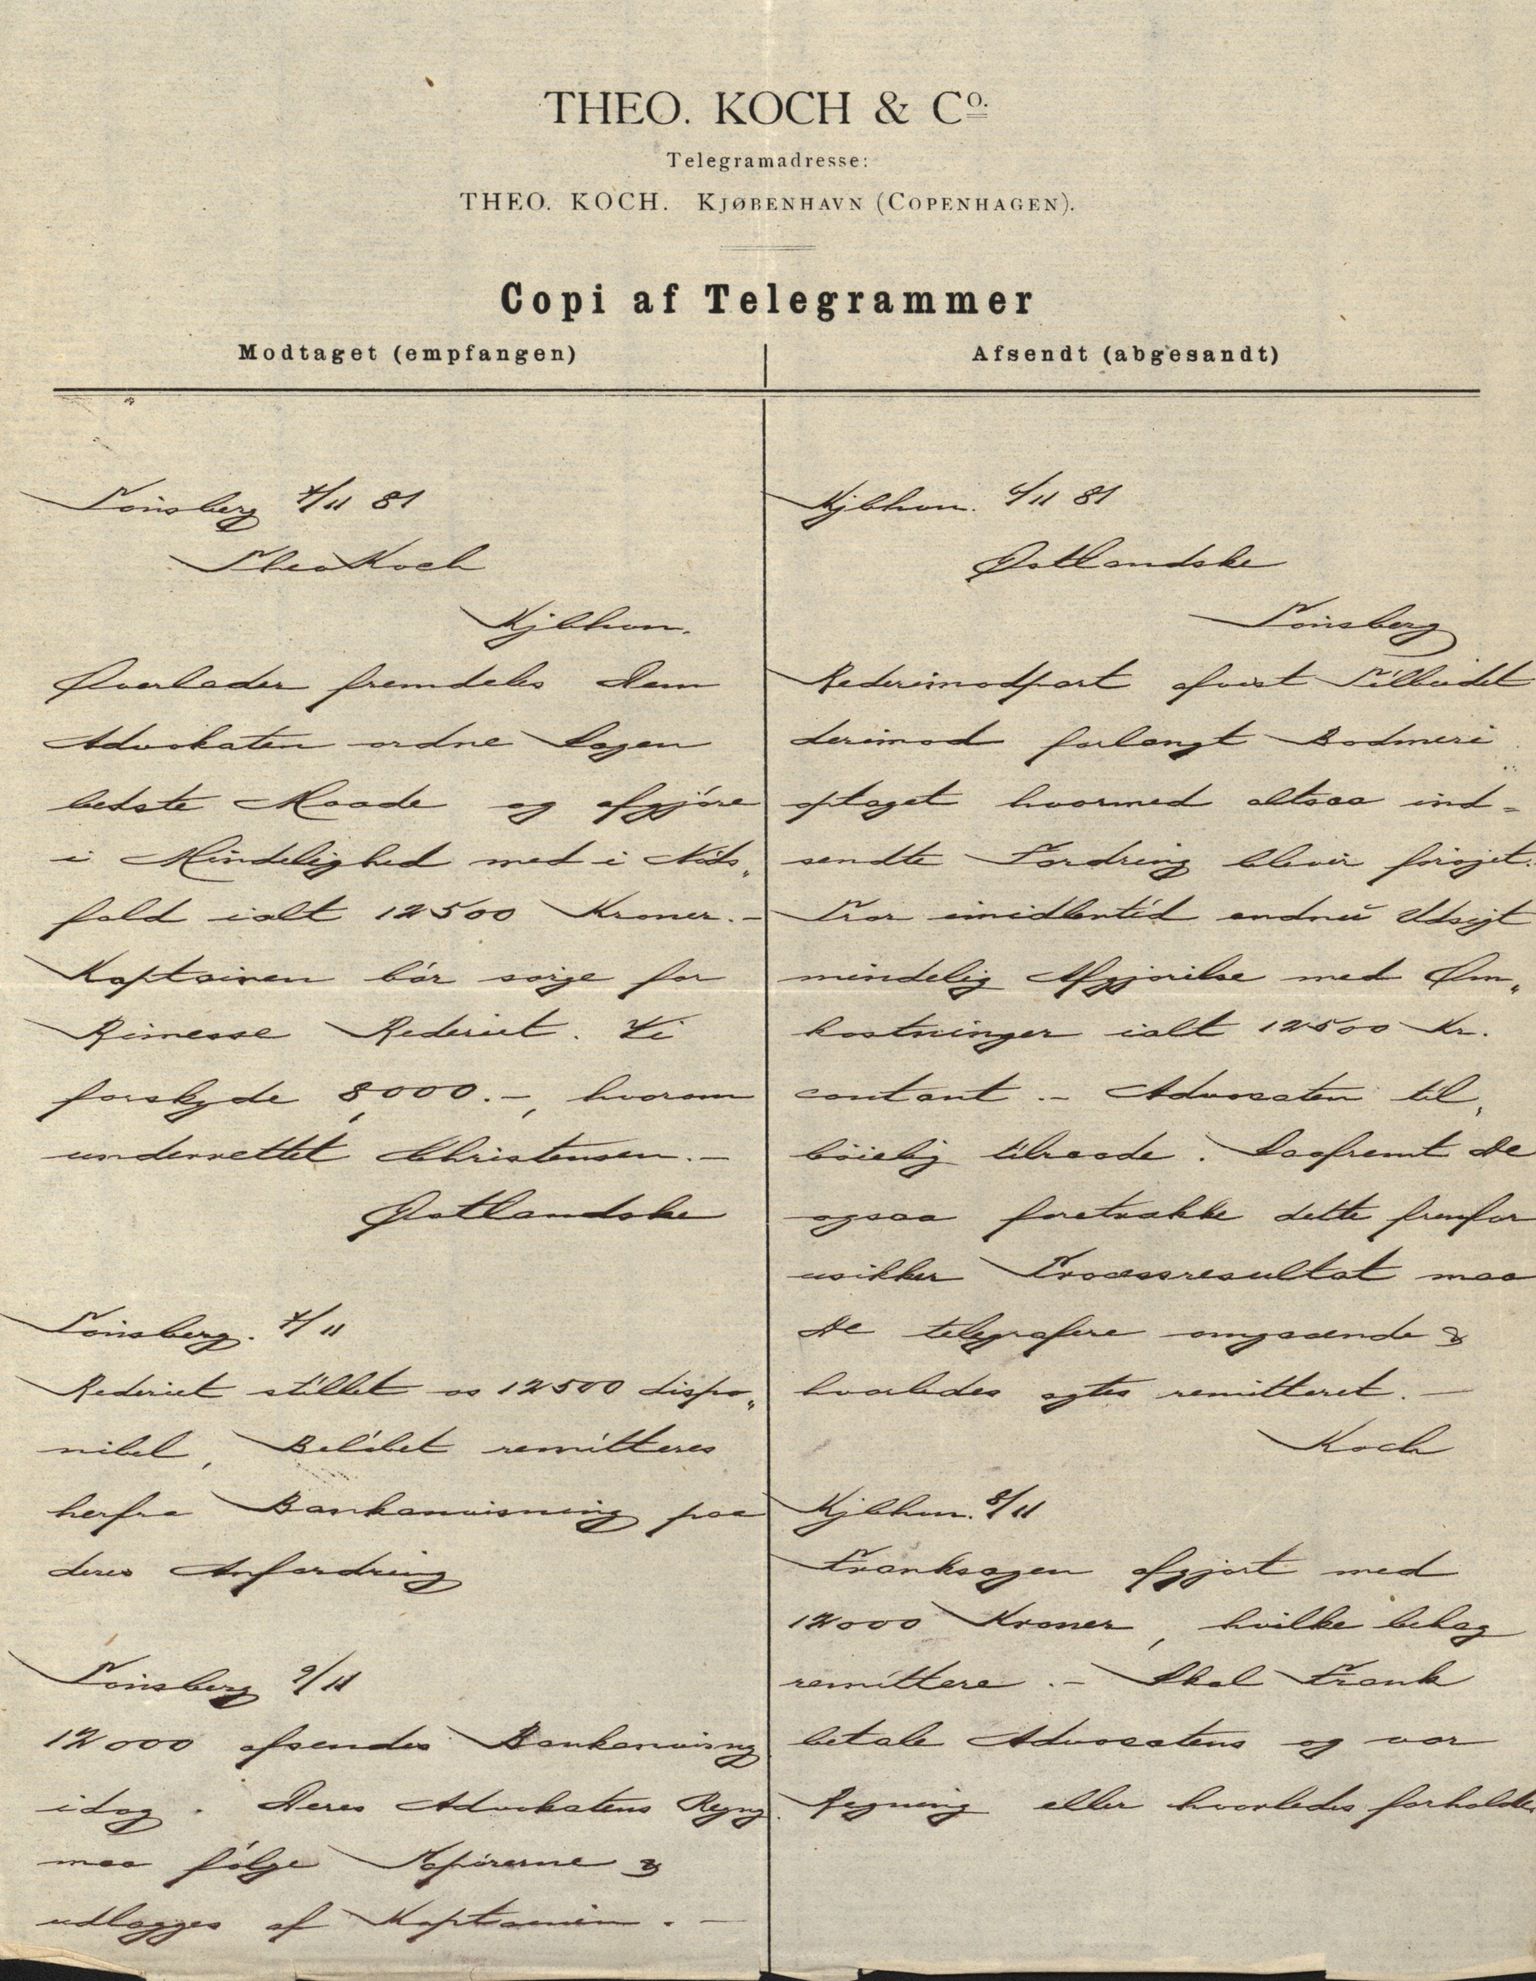 THEO. KOCH & Co.
Telegramadresse:
THEO. KOCH. KJØBENHAVN (COPENHAGEN).
Copi af Telegrammer
Modtaget (empfangen)
Tönsberg 7/11 81
Theo Koch
Kjbhvn.
Overlader fremdeles Dem
Advokaten ordne Sagen
bedste Maade og afgjöre
i Mindelighed med i Nöds„
fald ialt 12500 Kroner.-
Kaptainen bör sörge for
Rimesse Rederiet. Vi
forskyde 8,000.-, hvorom
underrettet Christensen.-
Østlandske
Tönsberg. 7/11
Rederiet stillet os 12500 dispo„
nibel, Belöbet remitteres
herfra Bankanvisning paa
deres Anfordring
Tönsberg 9/11
12000 afsendes Bankanvisng
idag. Deres Advokatens Regng
maa følge Papirerne &
udlægges af Kaptainen.-
Afsendt (abgesandt)
Kjbhvn. 6/11 81
Østlandske
Tönsberg
Rederimodpart afvist Tilbudet
derimod forlangt Bodmeri
optaget hvormed altsaa ind=
sendte Fordring bliver foröget.
Tror imidlertid endnu Udsigt
mindelig Afgjörelse med Om„
kostninger ialt 12500 Kr.
contant.- Advocaten til„
böielig tilraade. Saafremt De
ogsaa foretrække dette fremfor
usikker Procesresultat maa
De telegrafere omgaaende &
hvorledes agtes remitteret.-
Koch
Kjbhvn. 8/11
Franksagen afgjort med
12000 Kroner, hvilke behag
remittere.- Skal Frank
betale Advocatens og vor
Regning eller hvorledes forholdes